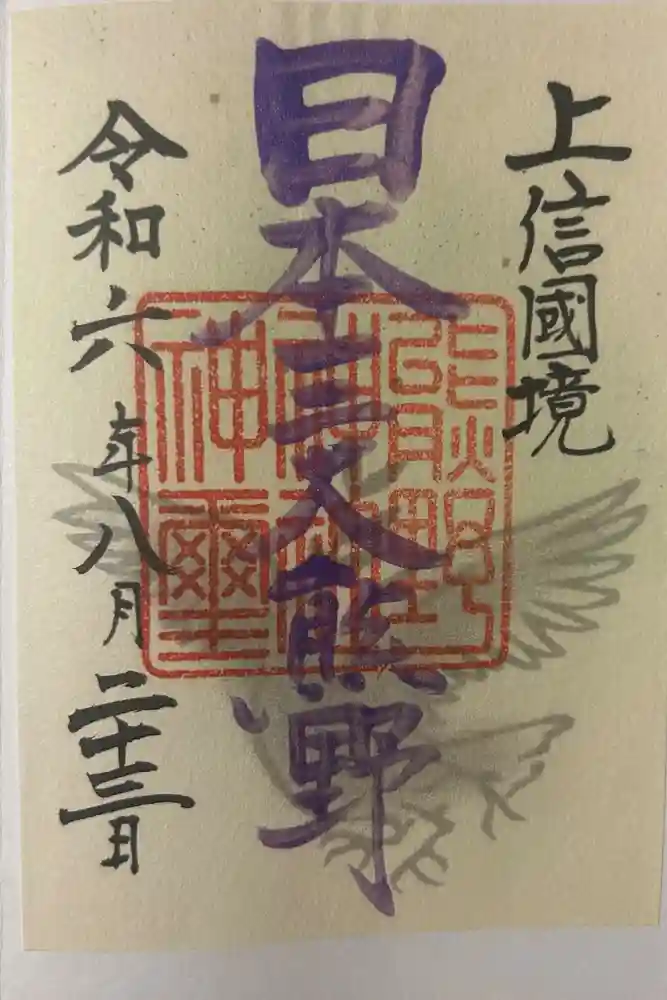 上信國境
日本三大熊野
令和六年八月二十三日
熊野
神社
神璽